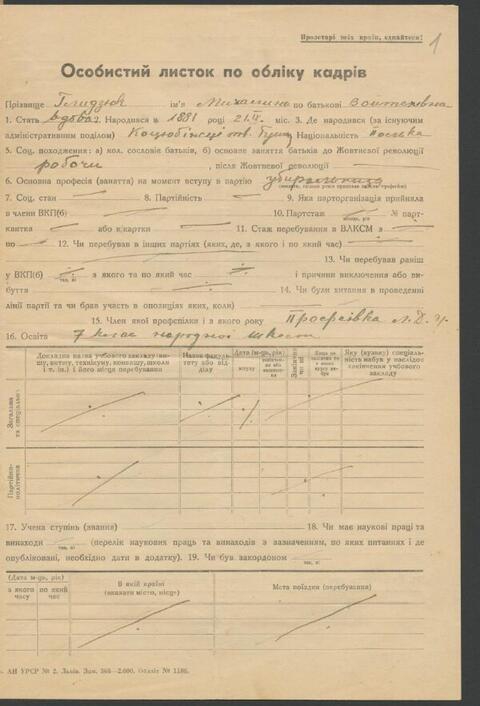 Пролетарі всіх країн, єднайтеся!
1
Особистий листок по обліку кадрів
Прізвище ім'я Михайлина по батькові Войтехівна
1. Стать вдова 2. Народився в 1891 році 21.II. міс. 3. Де (за існуючим
адміністративним поділом) Коцюбінсці 4. Національність полька
5. Соц. походження: а) кол. сословіє батьків, б) основне заняття батьків до Жовтневої революції
робочи , після Жовтневої революції
6. Основна професія (заняття) на момент вступу в партію
7. Соц. стан — 8. Партійність — 9. Яка парторганізація прийняла
в члени ВКП(б) 10. Партстаж № парт-
місяць, рік
квитка або картки 11. Стаж перебування в ВЛКСМ з
по 12. Чи перебував в інших партіях (яких, де, з якого і по який час)
13. Чи перебував раніш
у ВКП(б) з якого та по який час і причини виключення або ви-
так, ні
буття 14. Чи були хитання в проведенні
лінії партії та чи брав участь в опозиціях (яких, коли)
15. Член якої профспілки і з якого року Профспівка
16. Освіта 7 клас народної школи
Докладна назва учбового закладу (вишу, втишу, технікуму, комвишу, школи і т. ін.) і його місце перебування
Назва факультету або відділу
Дата (м-ць, рік)
вступу
закінчення або залишення
Закінчив чи ні
Якщо не закінчив то з якого курсу вибув
Яку (вузьку) спеціальність набув в наслідок закінчення учбового закладу
Загальна та спеціальна
Партійно-політична
17. Учена ступінь (звання) 18. Чи має наукові праці та
винаходи (перелік наукових праць та винаходів з зазначенням, по яких питаннях і де
так, ні
опубліковані, необхідно дати в додатку). 19. Чи був закордоном
так, ні
(Дата м-ць, рік)
з якого часу
по який час
В якій країні (вказати місто, місце)
Мета поїздки (перебування)
АН УРСР № 2. Львів. Зам. 366—2.000. Облліт № 1186.